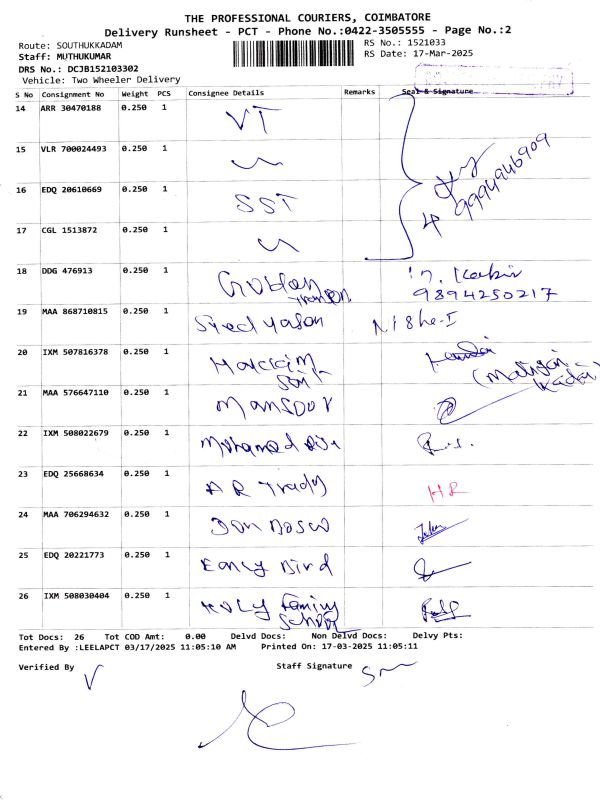 THE PROFESSIONAL COURIERS, COIMBATORE
Delivery Runsheet - PCT - Phone No.:0422-3505555 - Page No.:2
Route: SOUTHUKKADAM RS No.: 1521033
Staff: MUTHUKUMAR RS Date: 17-Mar-2025
DRS No.: DCJB152103302
Vehicle: Two Wheeler Delivery
S No Consignment No Weight PCS Consignee Details Remarks Seal & Signature
14 ARR 30470188 0.250 1 VT
15 VLR 700024493 0.250 1
9994946909
16 EDQ 20610669 0.250 1 SST
17 CGL 1513872 0.250 1
18 DDG 476913 0.250 1 Golden
9894250217
19 MAA 868710815 0.250 1 Syed Yason
20 IXM 507816378 0.250 1
21 MAA 576647110 0.250 1 Mansoor
22 IXM 508022679 0.250 1 Mohamed
23 EDQ 25668634 0.250 1 AR HR
24 MAA 706294632 0.250 1 Don Bosco
25 EDQ 20221773 0.250 1 Early Bird
26 IXM 508030404 0.250 1 Holy Family
School
Tot Docs: 26 Tot COD Amt: 0.00 Delvd Docs: Non Delvd Docs: Delvy Pts:
Entered By :LEELAPCT 03/17/2025 11:05:10 AM Printed On: 17-03-2025 11:05:11
Verified By Staff Signature